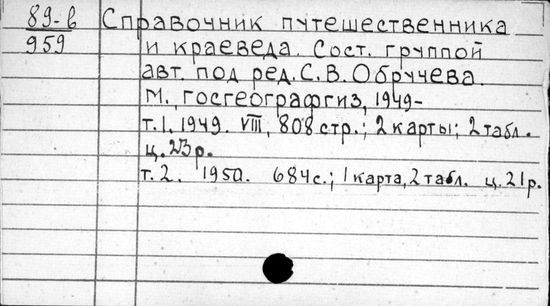 89-в Справочник путешественника
959 и краеведа. Сост. группой
авт. под ред. С. В. Обручева.
М., Госгеографгиз, 1949-
т. 1. 1949. VIII, 808 стр.; 2 карты; 2 табл.
ц. 23 р.
т. 2. 1950. 684 с.; 1 карта, 2 табл. ц. 21 р.